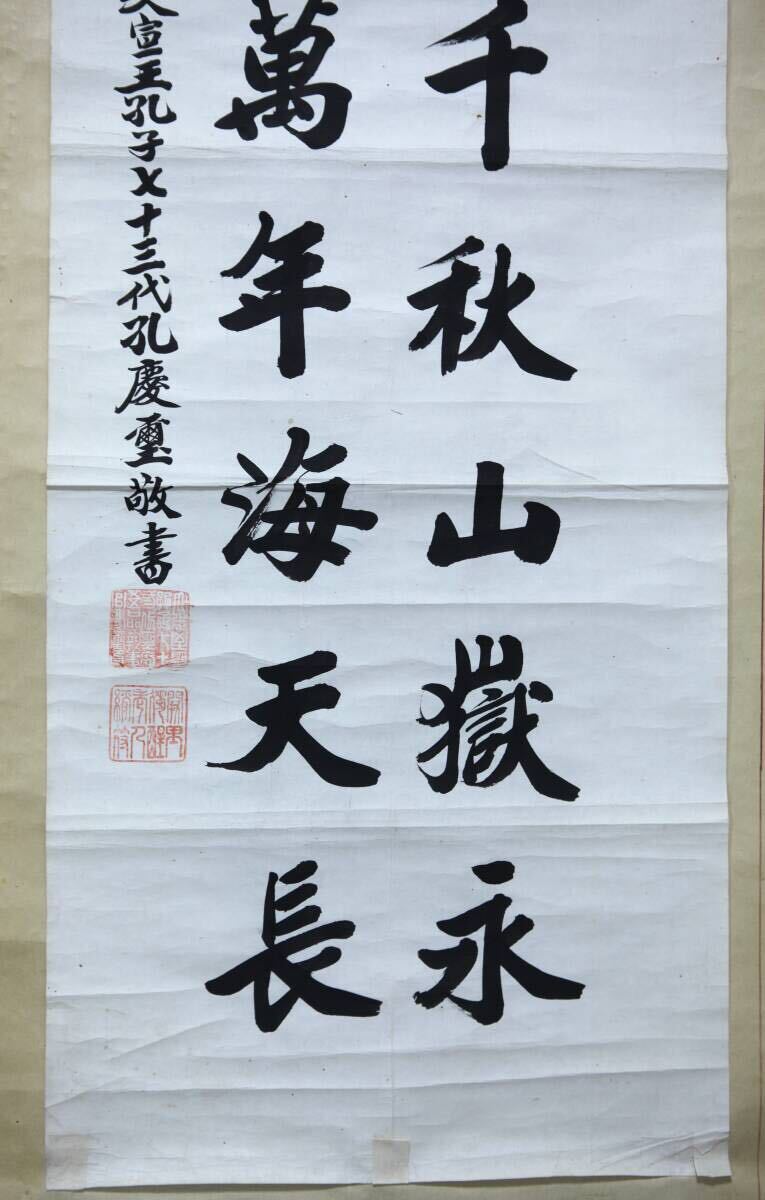 千秋山嶽永
萬年海天長
文宣王孔子七十三代孔慶璽敬書